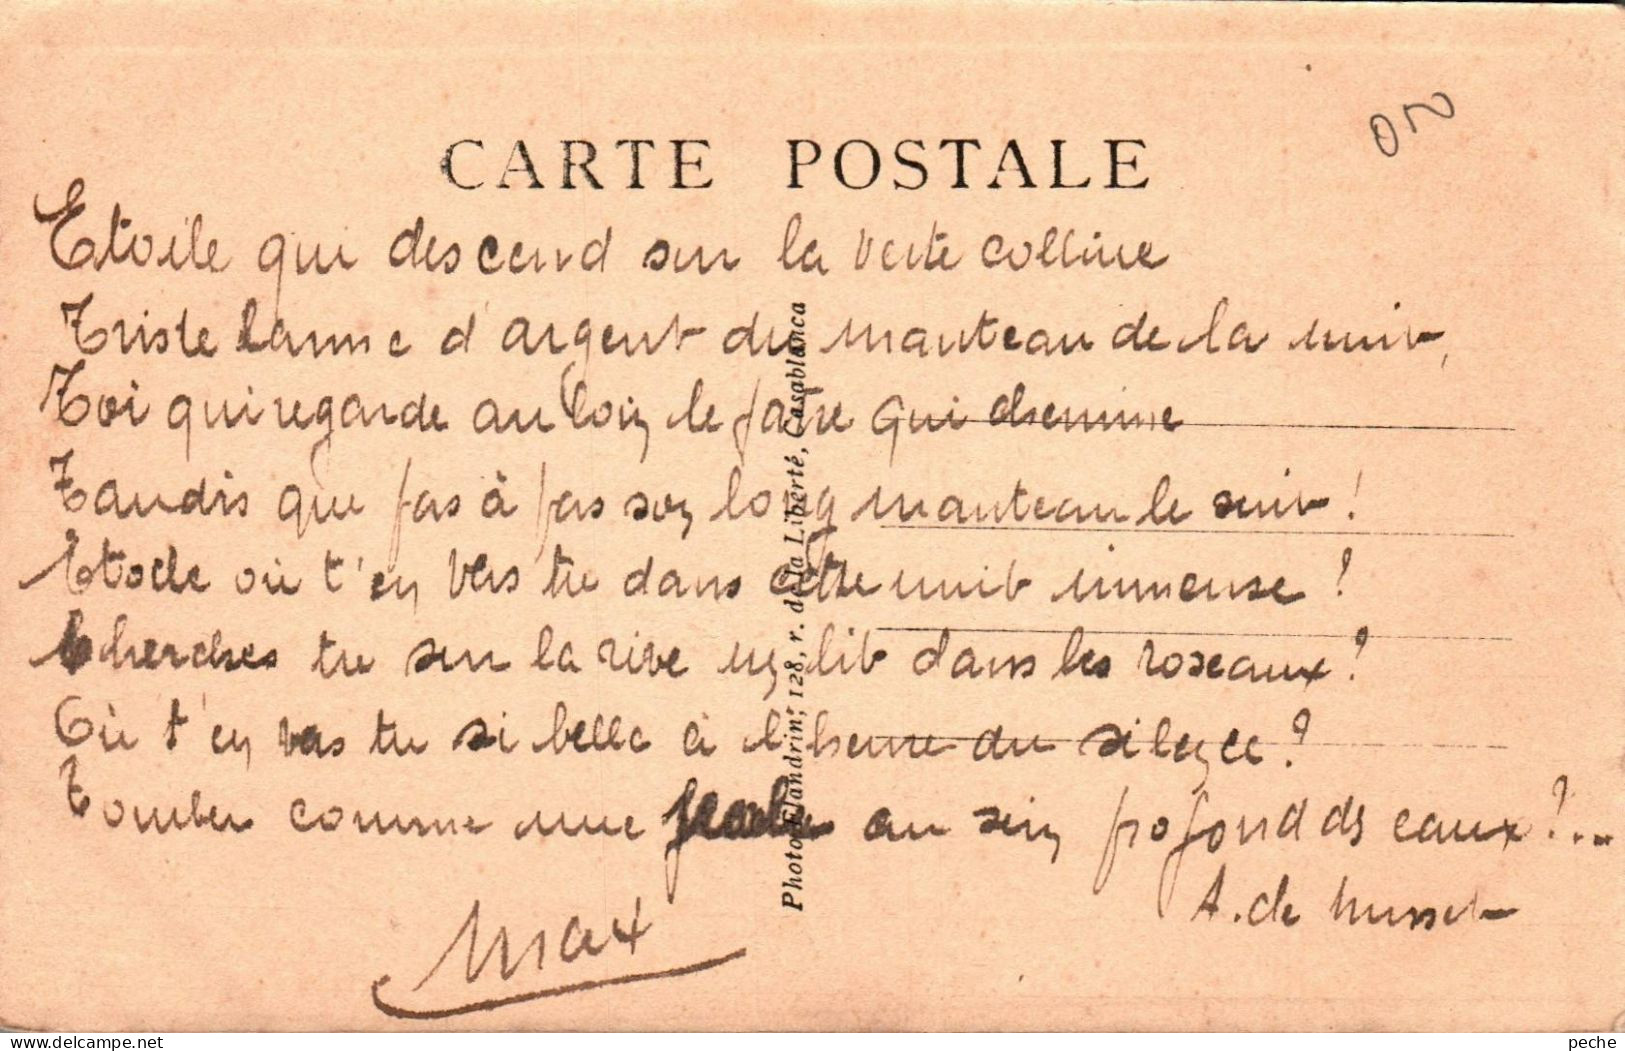 CARTE POSTALE
Etoile qui descend sur la verte colline
Triste larme d'argent du manteau de la nuit,
Toi qui regarde au loin le patre qui chemine
Tandis que pas à pas son long manteau le suit !
Etoile où t'en vas tu dans cette nuit immense ?
Cherches tu sur la rive un lit dans les roseaux ?
Où t'en vas tu si belle à l'heure du silence ?
Tomber comme une perle au sein profond des eaux ?...
A. de Musset
Max
Photo Flandrin, 128, r. de la Liberté, Casablanca
peche